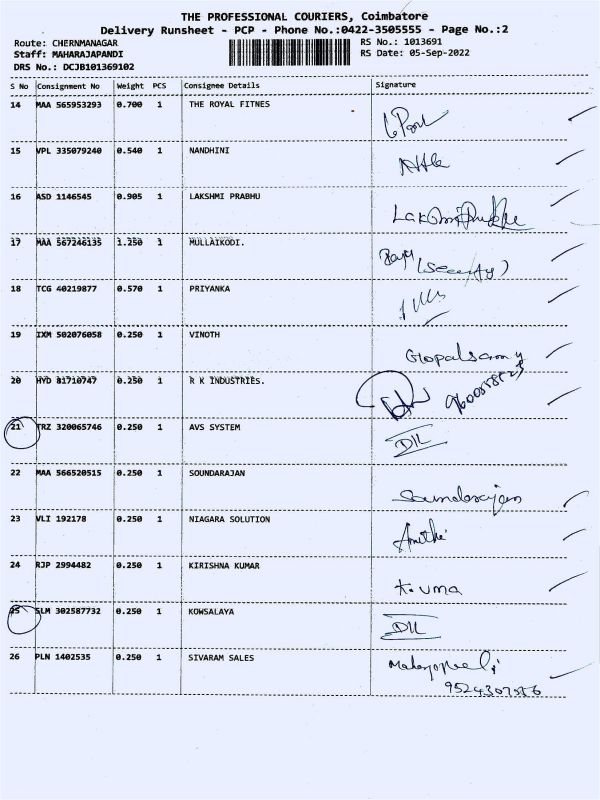 THE PROFESSIONAL COURIERS, Coimbatore
Delivery Runsheet - PCP - Phone No.:0422-3505555 - Page No.:2
Route: CHERNMANAGAR
RS No.: 1013691
Staff: MAHARAJAPANDI
RS Date: 05-Sep-2022
DRS No.: DCJB101369102
S No Consignment No Weight PCS Consignee Details Signature
14 MAA 565953293 0.700 1 THE ROYAL FITNES
15 VPL 335079240 0.540 1 NANDHINI
16 ASD 1146545 0.905 1 LAKSHMI PRABHU
17 MAA 567246135 1.250 1 MULLAIKODI. (Security)
18 TCG 40219877 0.570 1 PRIYANKA
19 IXM 502076058 0.250 1 VINOTH Gopalsamy
20 HYD 81710747 0.250 1 R K INDUSTRIES.
21 TRZ 320065746 0.250 1 AVS SYSTEM DIL
22 MAA 566520515 0.250 1 SOUNDARAJAN Soundarajan
23 VLI 192178 0.250 1 NIAGARA SOLUTION
24 RJP 2994482 0.250 1 KIRISHNA KUMAR K. uma
25 SLM 302587732 0.250 1 KOWSALAYA DIL
26 PLN 1402535 0.250 1 SIVARAM SALES